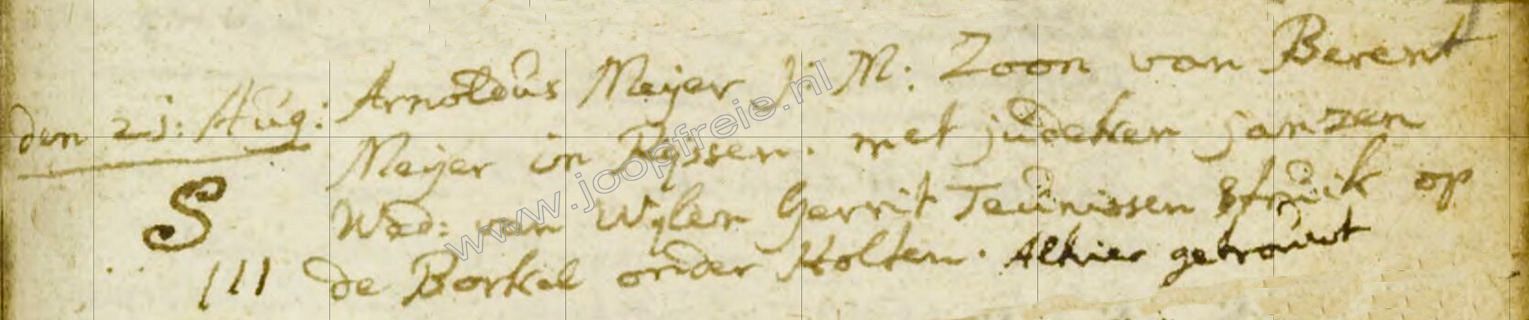 den 21: Aug: Arnoldus Meijer J: M: Zoon van Berent
Meijer in Rijssen. met judeken janzen
S Wed: van Wijlen Gerrit Teunissen Struik op
III de Borkel onder Holten. Alhier getrouwt
www.joopfreie.nl